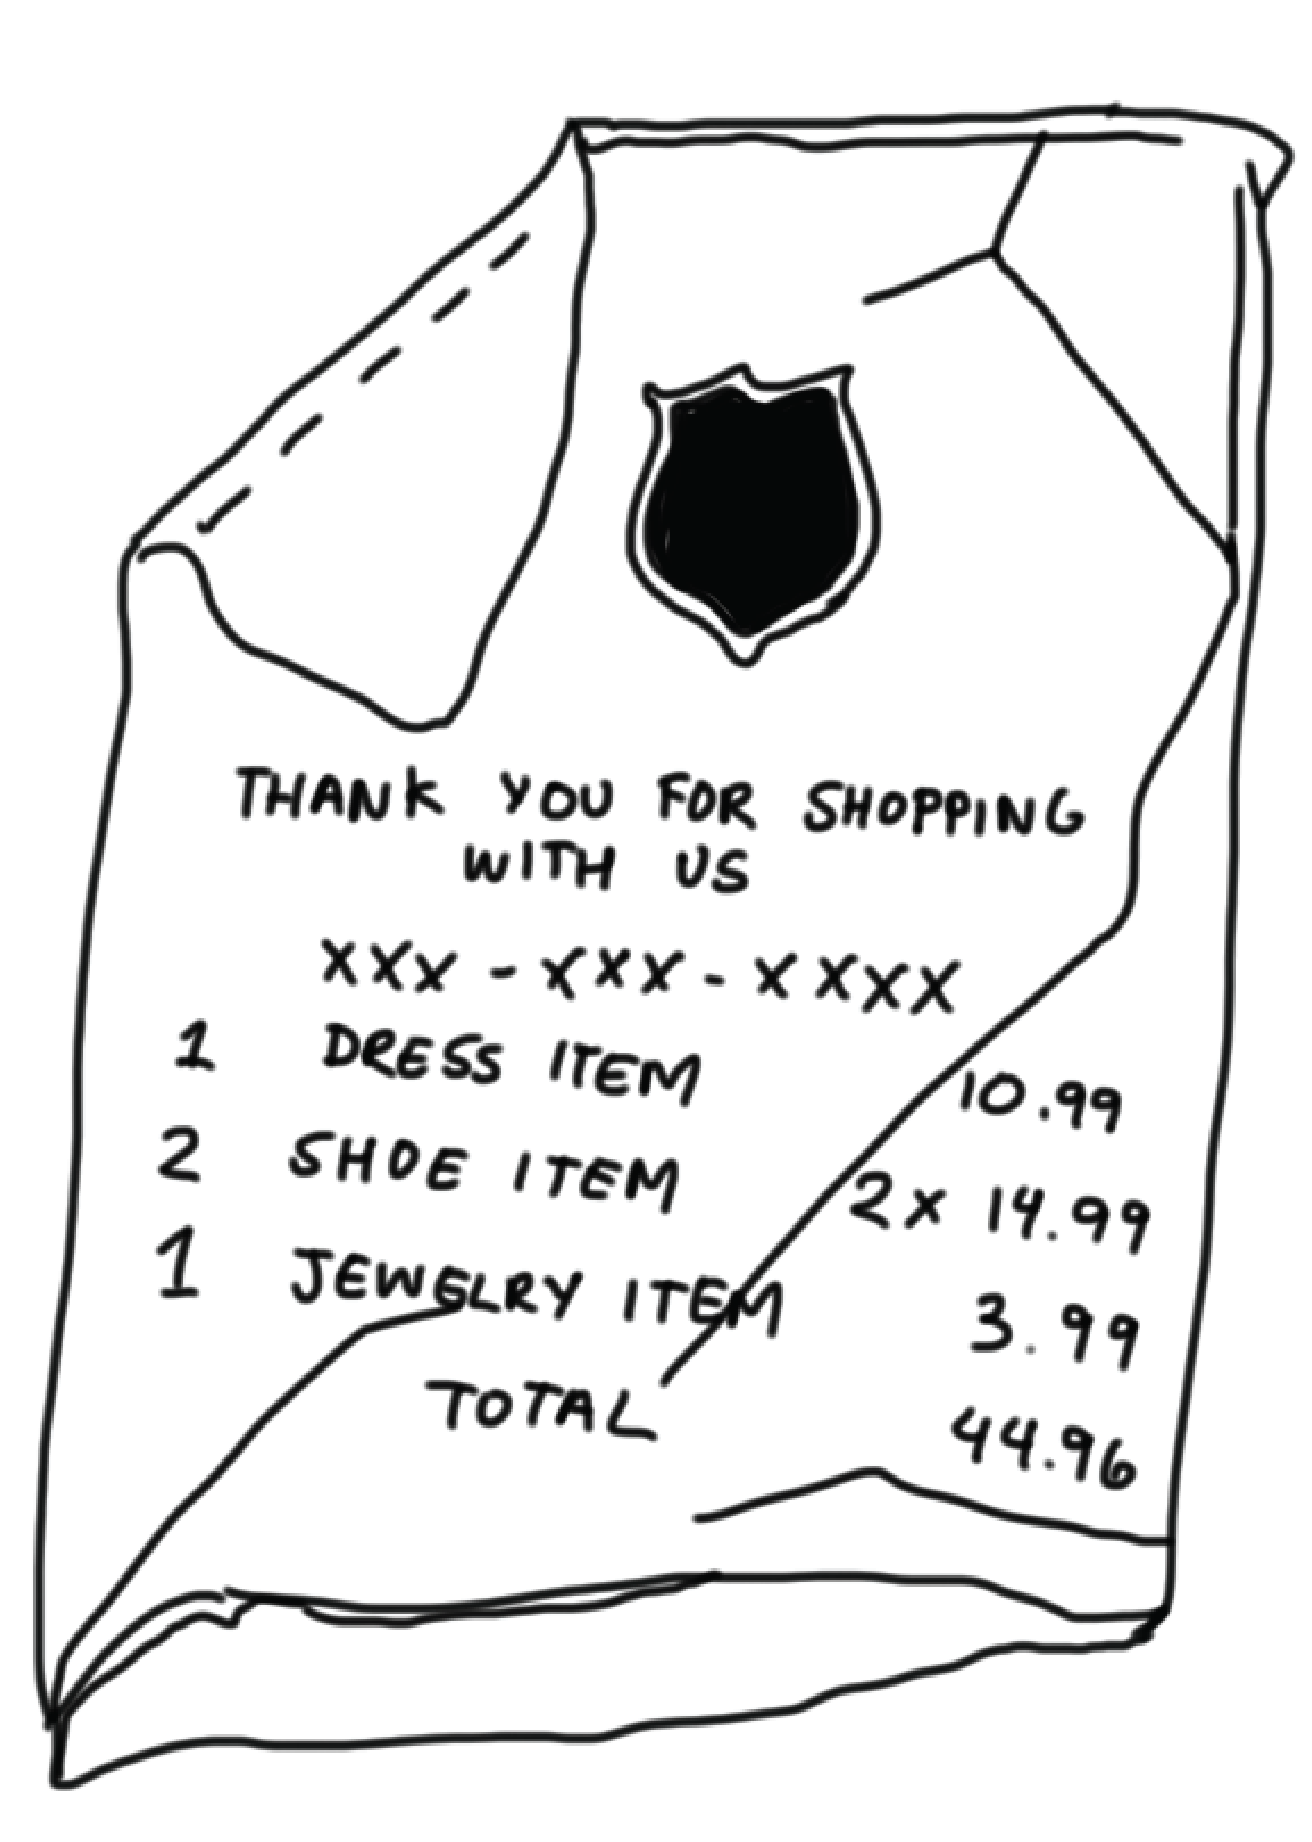 THANK YOU FOR SHOPPING
WITH US
XXX - XXX - XXXX
1 DRESS ITEM 10.99
2 SHOE ITEM 2x 14.99
1 JEWELRY ITEM 3.99
TOTAL 44.96